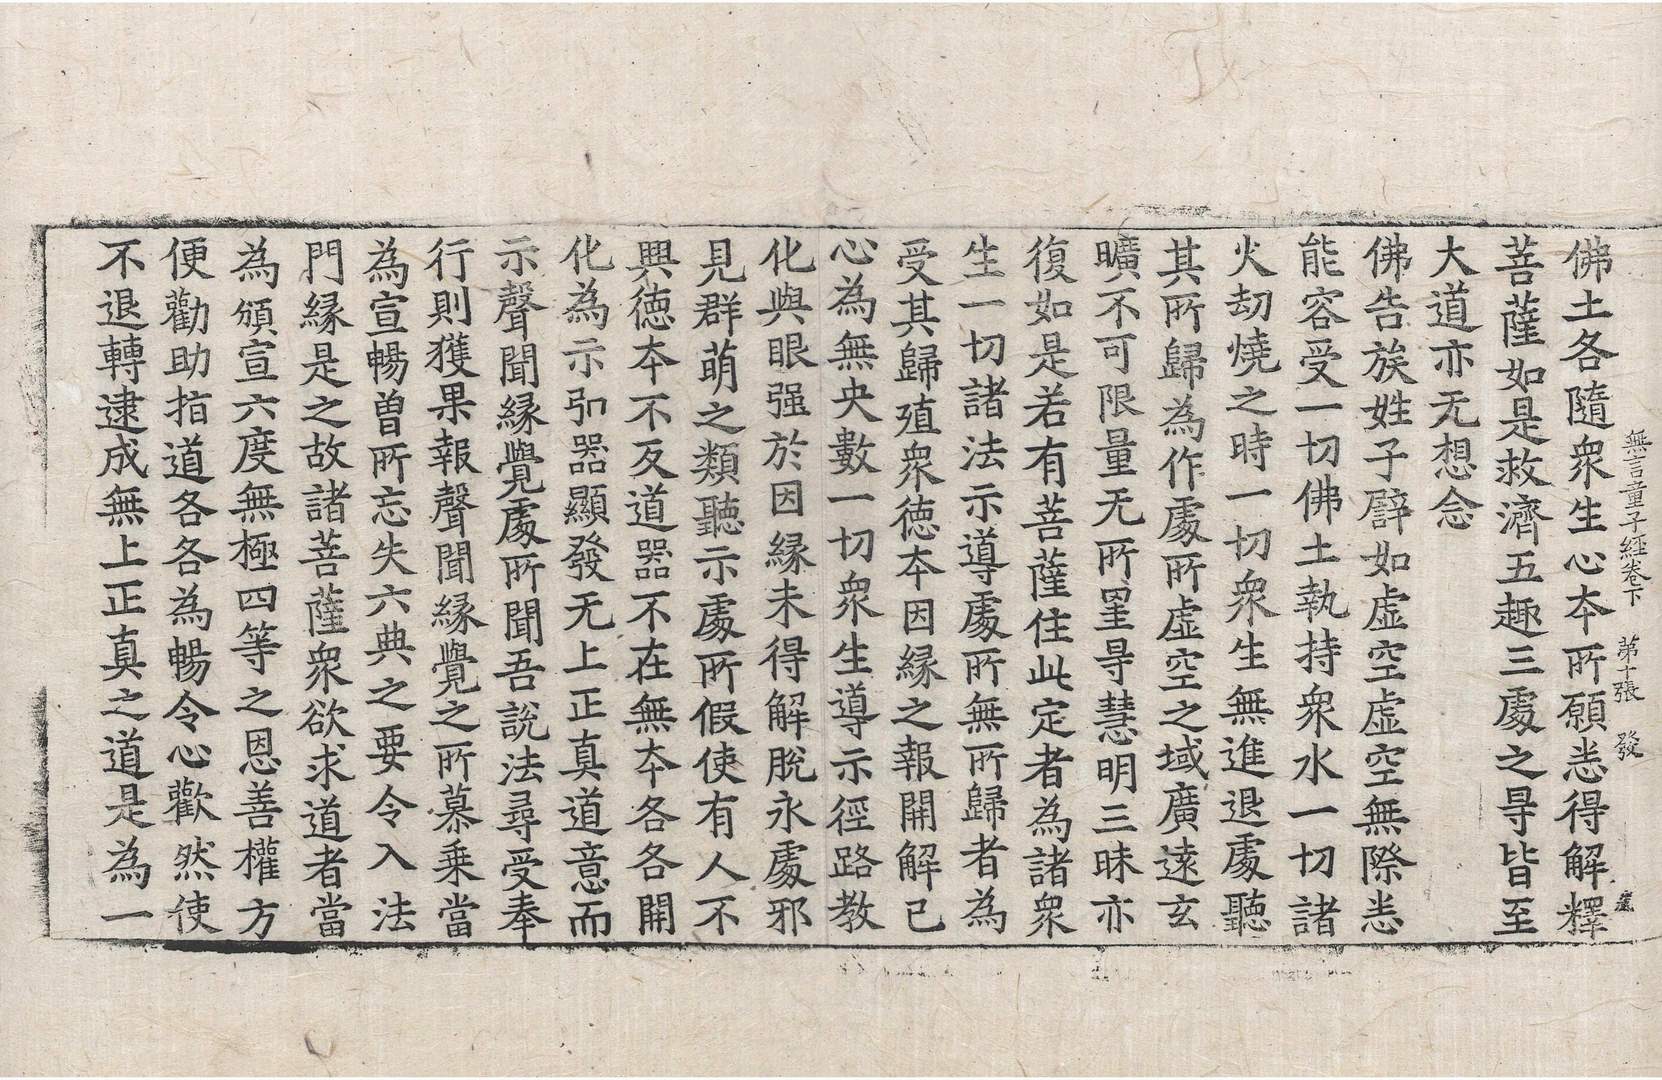 無言童子經卷下 第十張 發
佛土各隨衆生心夲所願悉得解釋
菩薩如是救濟五趣三處之㝵皆至
大道亦无想念
佛告族姓子譬如虛空虛空無際悉
能容受一切佛土執持衆水一切諸
火劫燒之時一切衆生無進退處聽
其所歸為作處所虛空之域廣遠玄
曠不可限量无所罣㝵慧明三昧亦
復如是若有菩薩住此定者為諸衆
生一切諸法示導處所無所歸者為
受其歸殖衆德夲因縁之報開解己
心為無央數一切衆生導示徑路教
化與眼强於因縁未得解脫永處邪
見群萌之類聽示處所假使有人不
興徳夲不及道器不在無夲各各開
化為示引器顯發无上正真道意而
示聲聞縁覺處所聞吾說法尋受奉
行則獲果報聲聞縁覺之所慕乗當
為宣暢曽所忘失六典之要令入法
門縁是之故諸菩薩衆欲求道者當
為頒宣六度無極四等之恩善權方
便勸助指道各各為暢令心歡然使
不退轉逮成無上正真之道是為一